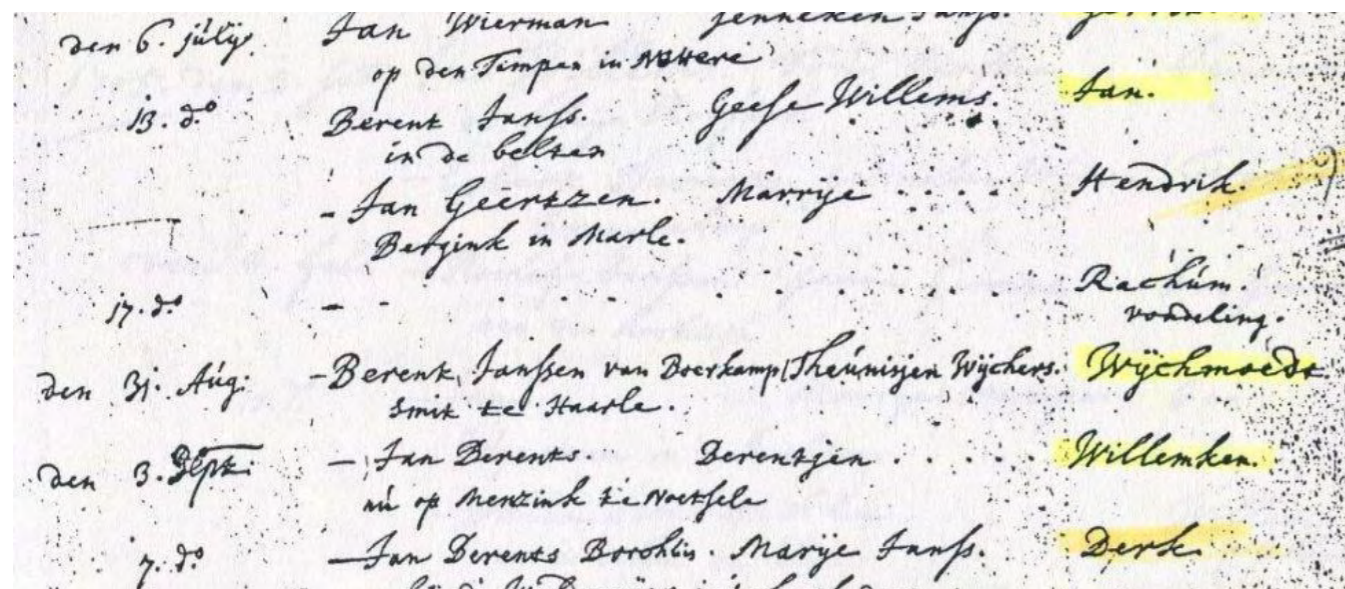 den 6. júlÿ. Jan Wierman Jenneken Janss.
op den Tempen in
13. do Berent Janss. Geese Willems. Jan.
in de belten
- Jan Geertzen. Marrije . . . . Hendrik.
Bergink in Marle.
17. do - - . . . . . . . . Rachúm.
vondeling.
den 31. Aúg: - Berent Janssen van Doerkamp Theúnisjen Wÿchers. Wÿchmoedt
Smit te Haarle.
den 3. Sept: - Jan Berents. Berentjen . . . . . Willemken.
nú op Menzink te Noetsele
7. do - Jan Berents Marije Janss. Derk